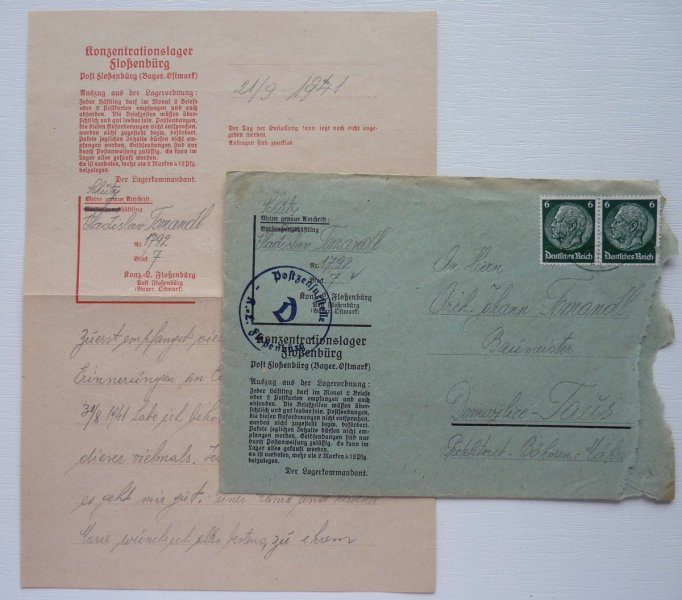 Konzentrationslager
Floßenbürg
Post Floßenbürg (Bayer. Ostmark)
Auszug aus der Lagerordnung:
Jeder Häftling darf im Monat 2 Briefe
oder 2 Postkarten empfangen und auch
absenden. Die Briefzeilen müssen über-
sichtlich und gut lesbar sein. Postsendungen,
die diesen Anforderungen nicht entsprechen,
werden nicht zugestellt bezw. befördert.
Pakete jeglichen Inhalts dürfen nicht emp-
fangen werden. Geldsendungen sind nur
durch Postanweisung zulässig. Es kann im
Lager alles gekauft werden.
Es ist verboten, mehr als 2 Marken à 12 Pfg.
beizulegen.
Der Lagerkommandant.
21/9 1941
Der Tag der Entlassung kann jetzt noch nicht ange-
geben werden.
Anfragen sind zwecklos
Schutz
Meine genaue Anschrift:
häftling
Vladislav Tomandl
Nr. 1792
Block 7
Konz.-L. Floßenbürg
Post Floßenbürg
(Bayer. Ostmark)
Zuerst empfanget
Erinnerungen an
1941 habe ich
dieser vielmals.
es geht mir gut.
Marie wünsche ich alles zu ihrem
Schutz
Meine genaue Anschrift:
häftling
Vladislav Tomandl
Nr. 1792
Block 7
Konz.-L. Floßenbürg
Post Floßenbürg
(Bayer. Ostmark)
Postzensurstelle
K.L. Floßenbürg
Konzentrationslager
Floßenbürg
Post Floßenbürg (Bayer. Ostmark)
Auszug aus der Lagerordnung:
Jeder Häftling darf im Monat 2 Briefe
oder 2 Postkarten empfangen und auch
absenden. Die Briefzeilen müssen über-
sichtlich und gut lesbar sein. Postsendungen,
die diesen Anforderungen nicht entsprechen,
werden nicht zugestellt bezw. befördert.
Pakete jeglichen Inhalts dürfen nicht emp-
fangen werden. Geldsendungen sind nur
durch Postanweisung zulässig. Es kann im
Lager alles gekauft werden.
Es ist verboten, mehr als 2 Marken à 12 Pfg.
beizulegen.
Der Lagerkommandant.
6 6
Deutsches Reich
6 6
Deutsches Reich
An Herrn
Arch. Johann Tomandl
Baumeister
Domažlice - Taus
Böhmen-